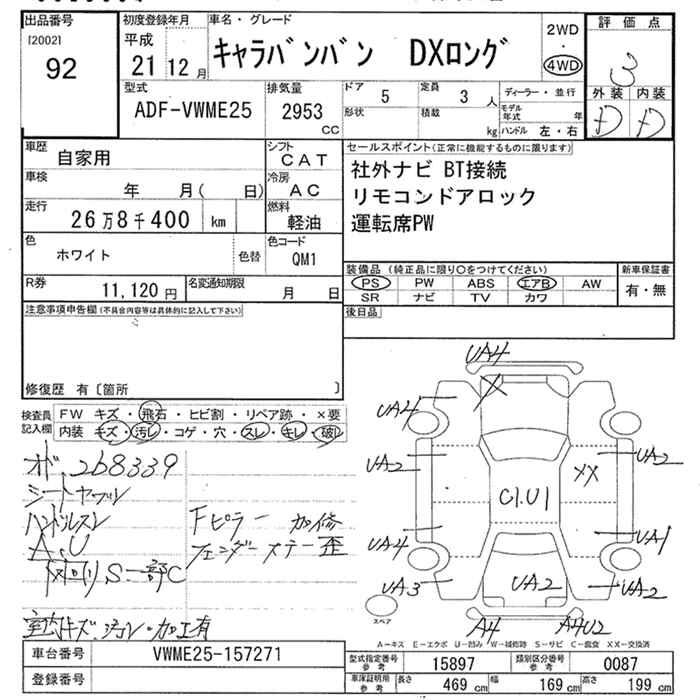 出品番号
[2002]
92
初度登録年月
平成
21 12 月
車名・グレード
キャラバンバン DXロング
2WD
・
4WD
評価点
3
外装 内装
D D
型式
ADF-VWME25
排気量
2953 CC
ドア 5
定員 3 人
形状
積載 kg
ディーラー・並行
モデル年式 年
ハンドル 左・右
車歴
自家用
シフト
CAT
車検
年 月( 日)
冷房
AC
走行
26万8千400 km
燃料
軽油
色
ホワイト
色替
色コード
QM1
R券
11,120 円
名変通知期限
月 日
セールスポイント(正常に機能するものに限ります)
社外ナビ BT接続
リモコンドアロック
運転席PW
装備品(純正品に限り○をつけてください)
PS PW ABS エアB AW
SR ナビ TV カワ
新車保証書
有・無
後日品
注意事項申告欄(不具合内容等は具体的に記入して下さい)
修復歴 有〔箇所 〕
検査員記入欄
FW キズ・飛石・ヒビ割・リペア跡・×要
内装 キズ・汚レ・コゲ・穴・スレ・キレ・破レ
オド、268339
シートヤブレ
ハンドルスレ
A、U
下回りS一部C
Fピラー 加修
フェンダーステー歪
室内キズ、汚レ・加工有
UA4
UA4
UA2
UA2
XX
G1.U1
UA4
UA1
UA3
UA2
UA2
A4
A4U2
スペア
A-キズ E-エクボ U-凹み W-補修跡 S-サビ C-腐食 XX-交換済
車台番号
VWME25-157271
登録番号
型式指定番号 参考
15897
類別区分番号 参考
0087
車庫証明用 参考
長さ 469 cm
幅 169 cm
高さ 199 cm